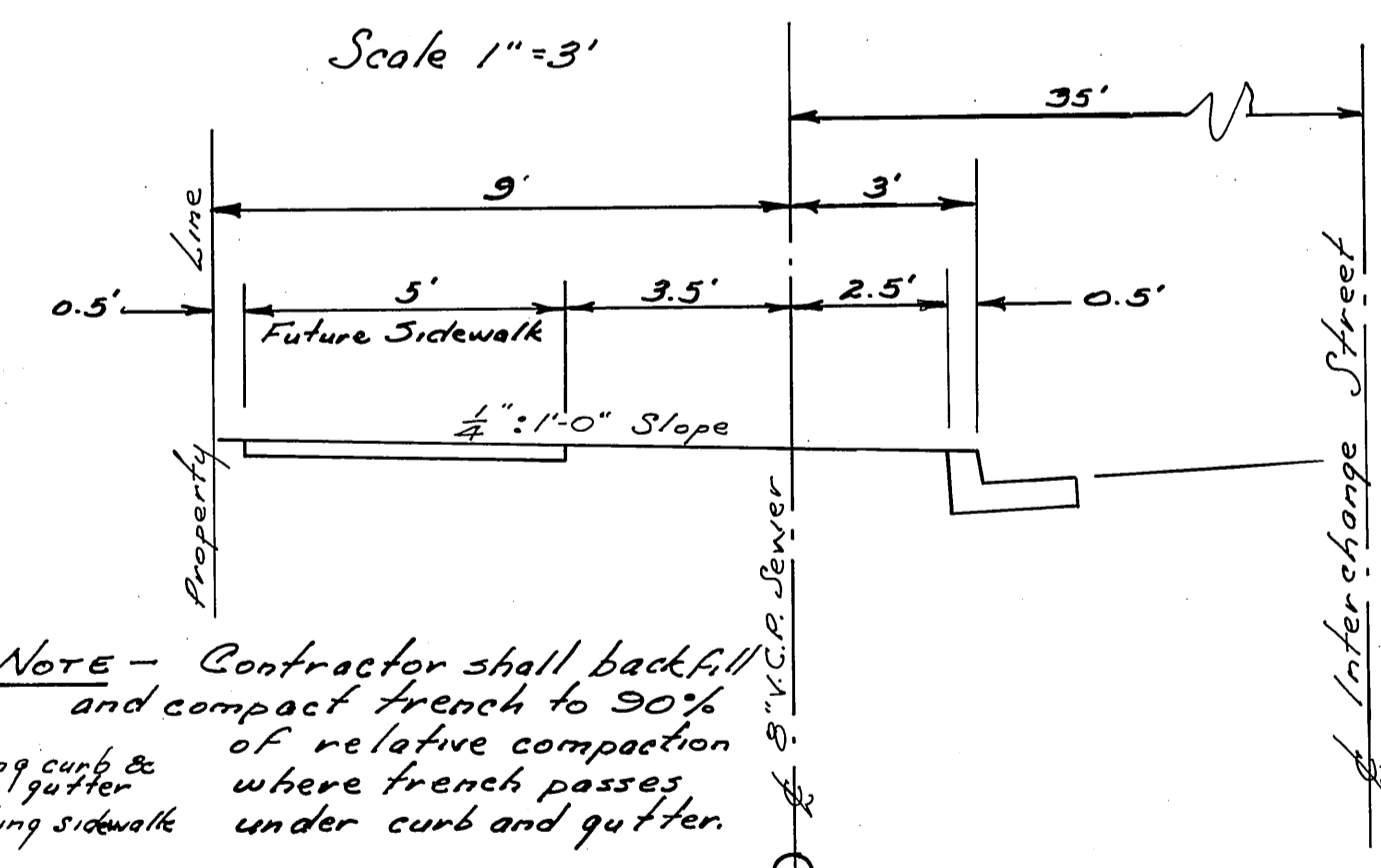 Scale 1"=3'
35'
9'
3'
0.5'
5'
3.5'
2.5'
0.5'
Future Sidewalk
1/4":1'-0" Slope
Property Line
℄ 8" V.C.P. Sewer
℄ Interchange Street
NOTE - Contractor shall backfill
and compact trench to 90%
of relative compaction
where trench passes
under curb and gutter.
curb &
gutter
sidewalk